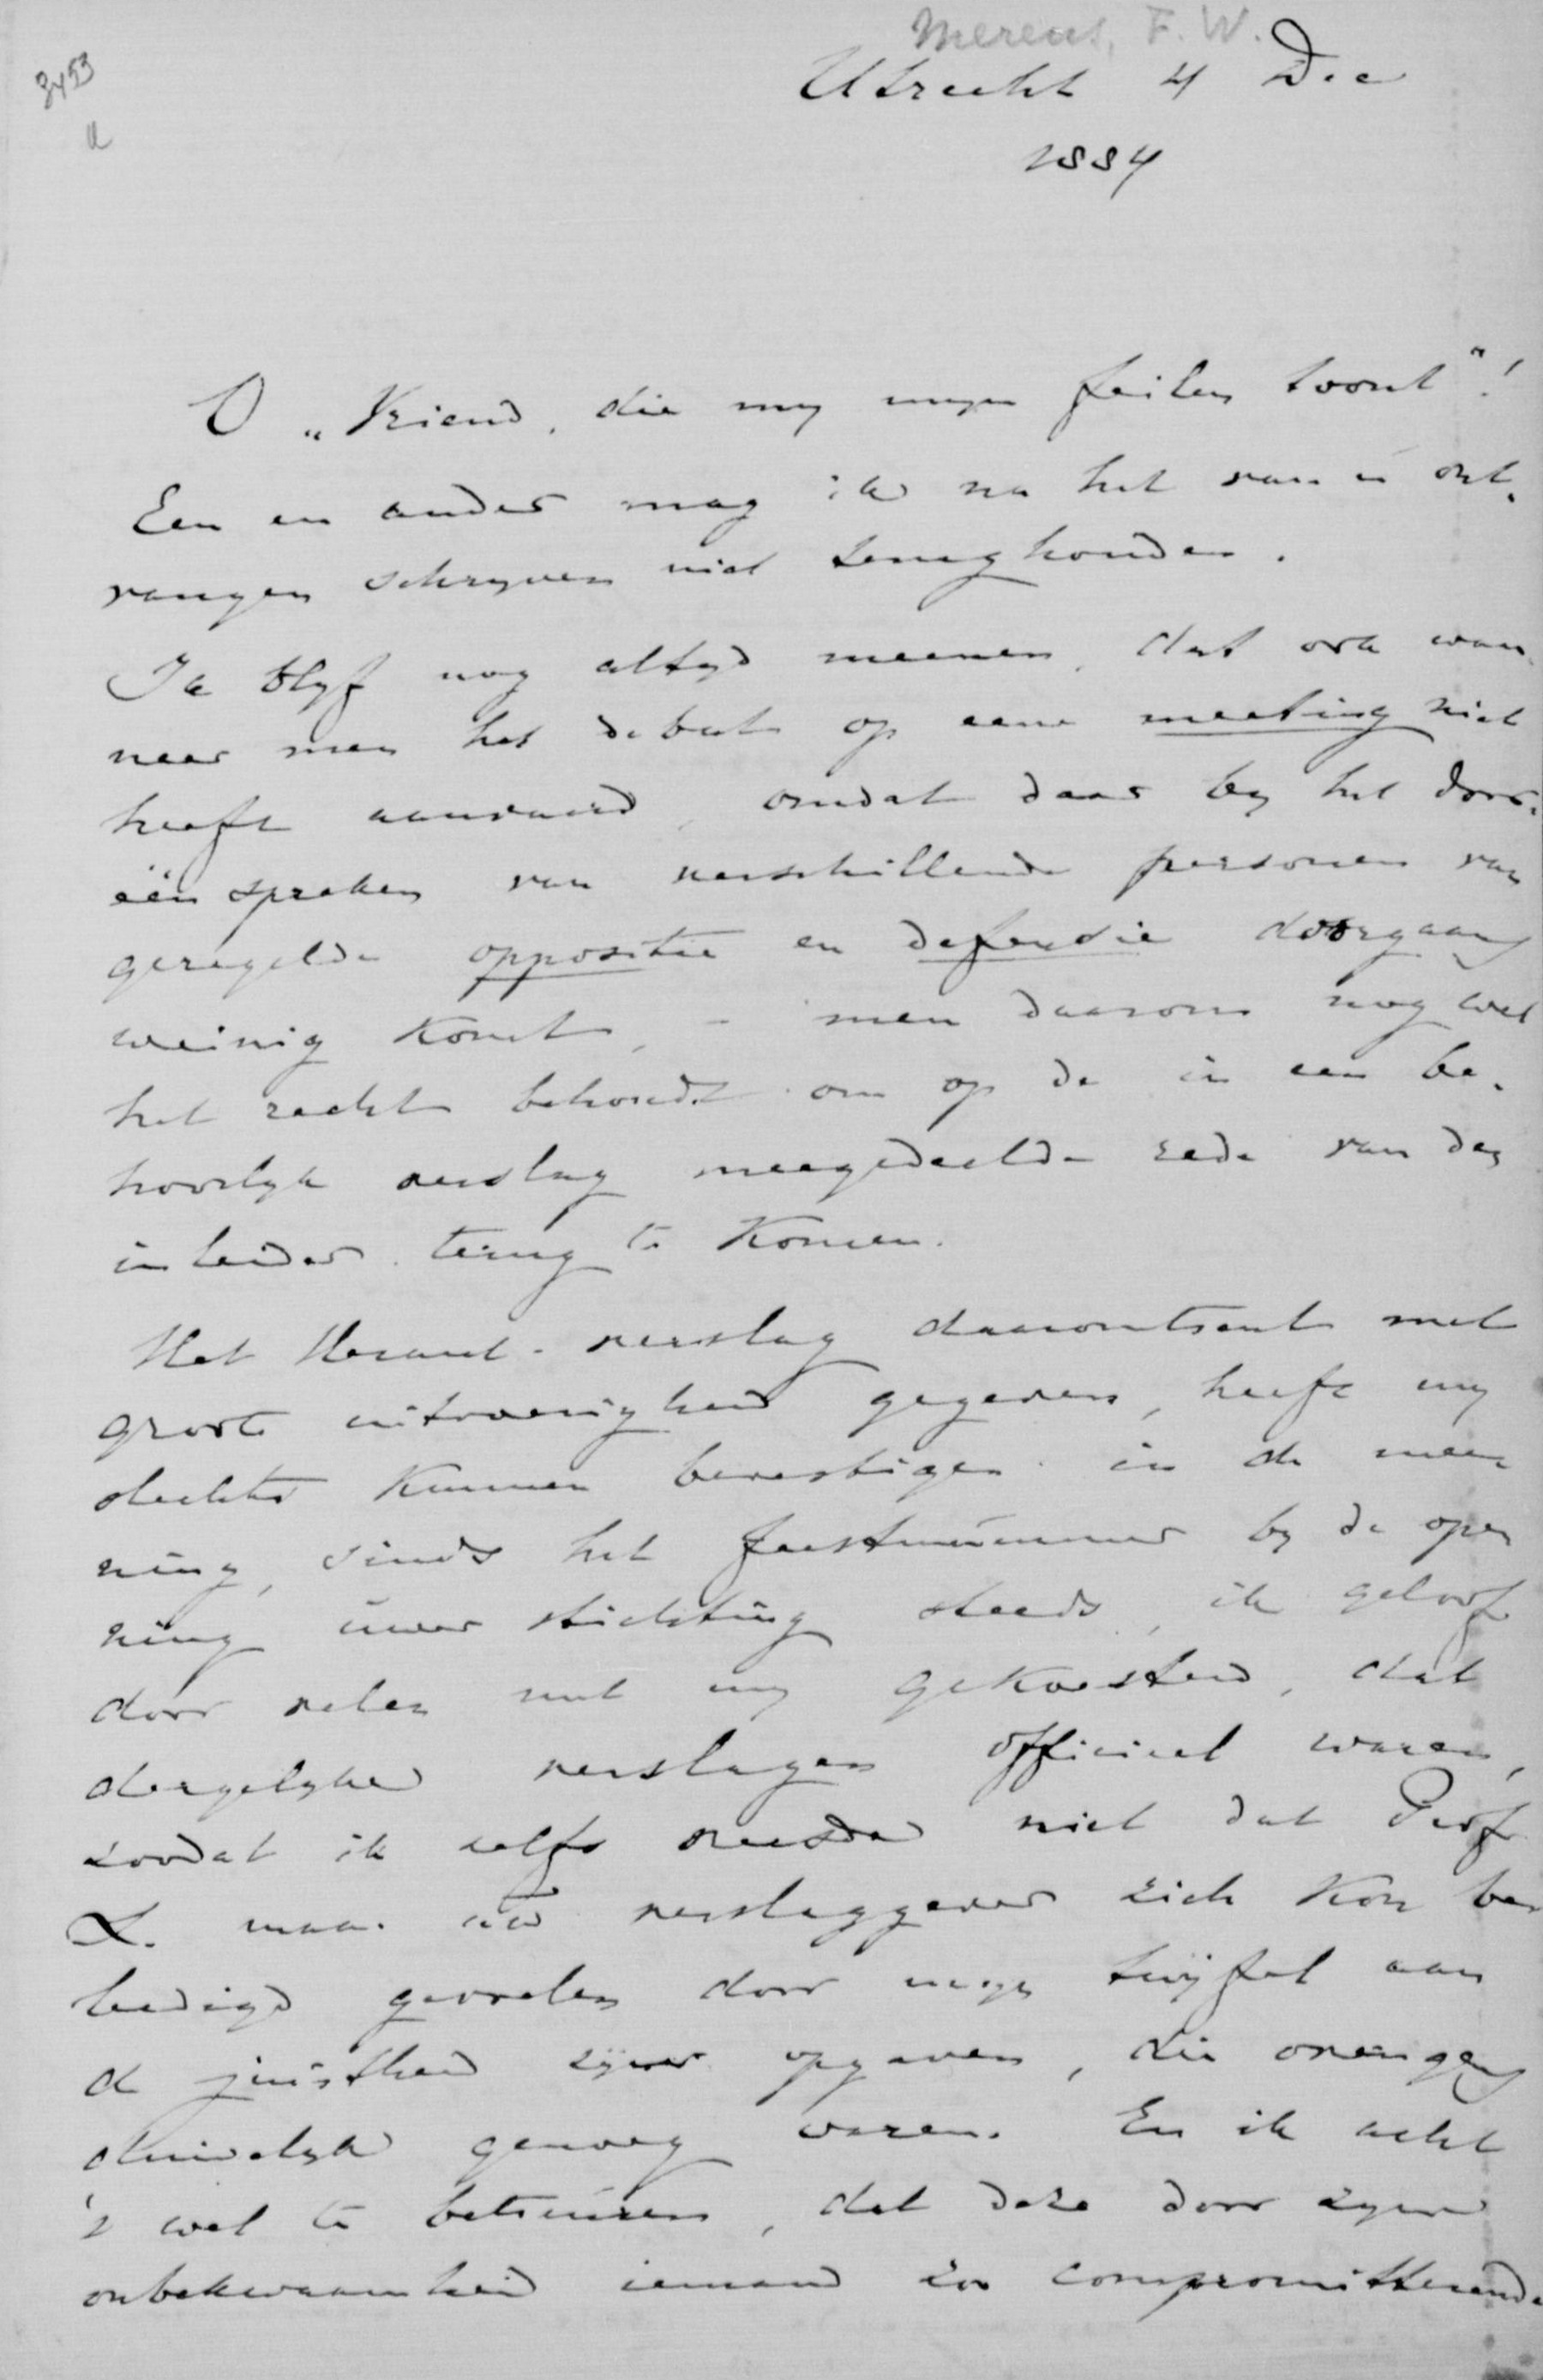 Merens, F. W.
3453
a
Utrecht 4 Dec
1884
O „Vriend, die my myn feilen toont"!
Een en ander mag ik na het van ú ont-
vangen schryven niet terughouden.
Ik blyf nog altyd meenen, dat ook wan-
neer men het debat op eene meeting niet
heeft aanvaard, omdat daar by het door-
één spreken van verschillende personen van
geregelde oppositie en defensie doorgaans
weinig komt, - men daarom nog wel
het recht behoudt om op de in een be-
hoorlyk verslag meegedeelde rede van den
inleider terug te komen.
Het Heraut-verslag daaromtrent met
groote uitvoerigheid gegeven, heeft my
slechts kunnen bevestigen in de mee-
ning, sinds het feestnummer by de ope-
ning uwer stichting steeds, ik geloof
door velen met my gekoesterd, dat
dergelyke verslagen officieel waren,
zoodat ik zelfs niet dat Prof
L. maar uw verslaggever zich kon be-
leedigd gevoelen door myn twijfel aan
de juistheid zijner opgaven, die overigens
duidelyk genoeg waren. En ik acht
't wel te betreuren, dat deze door zyne
onbekwaamheid iemand zoo compromitteerende